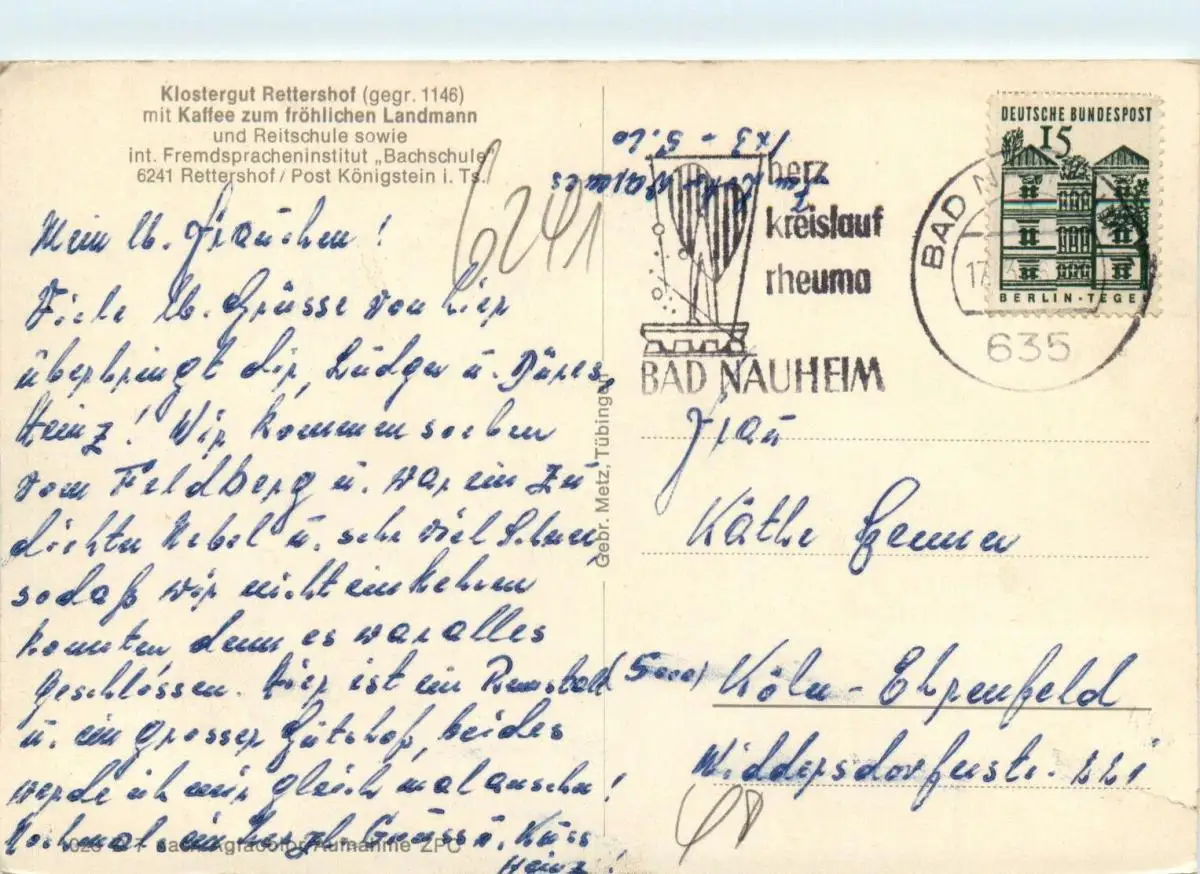 Klostergut Rettershof (gegr. 1146)
mit Kaffee zum fröhlichen Landmann
und Reitschule sowie
int. Fremdspracheninstitut „Bachschule"
6241 Rettershof / Post Königstein i. Ts.
6241
Mein lb. Frauchen!
Viele lb. Grüsse von hier
überbringt dir, Ludger u. Dürer,
Heinz! Wir kommen soeben
vom Feldberg u. war ein zu
dichter Nebel u. sehr viel Schnee,
sodaß wir nicht einkehren
konnten denn es war alles
geschlossen. Hier ist ein Rennstall
u. ein grosser Gutshof, beides
werde ich mir gleich mal anschen!
Nochmal ein herzl. Gruss u. Kuss
Heinz!
1026 nach Agfacolor-Aufnahme ZPC
Gebr. Metz, Tübingen
1x3 - 5
herz
kreislauf
rheuma
BAD NAUHEIM
DEUTSCHE BUNDESPOST
15
BERLIN-TEGEL
BAD N
17
635
Frau
Käthe
5000 Köln-Ehrenfeld
Widdersdorferstr. 221
48